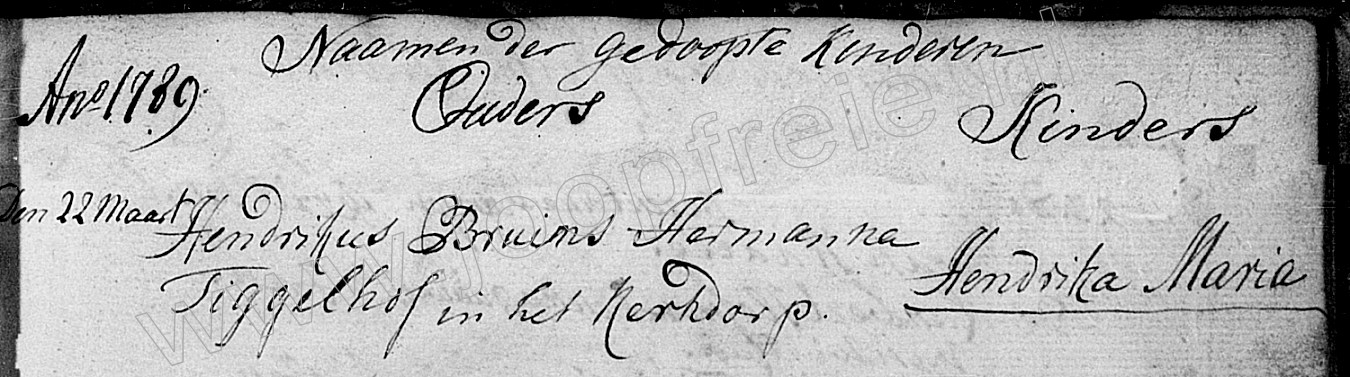 Naamen der gedoopte kinderen
Ano 1789. Ouders Kinders
Den 22 Maart Hendrikus Bruins Hermanna Hendrika Maria
Tiggelhof in het Kerkdorp.
www.joopfreie.nl